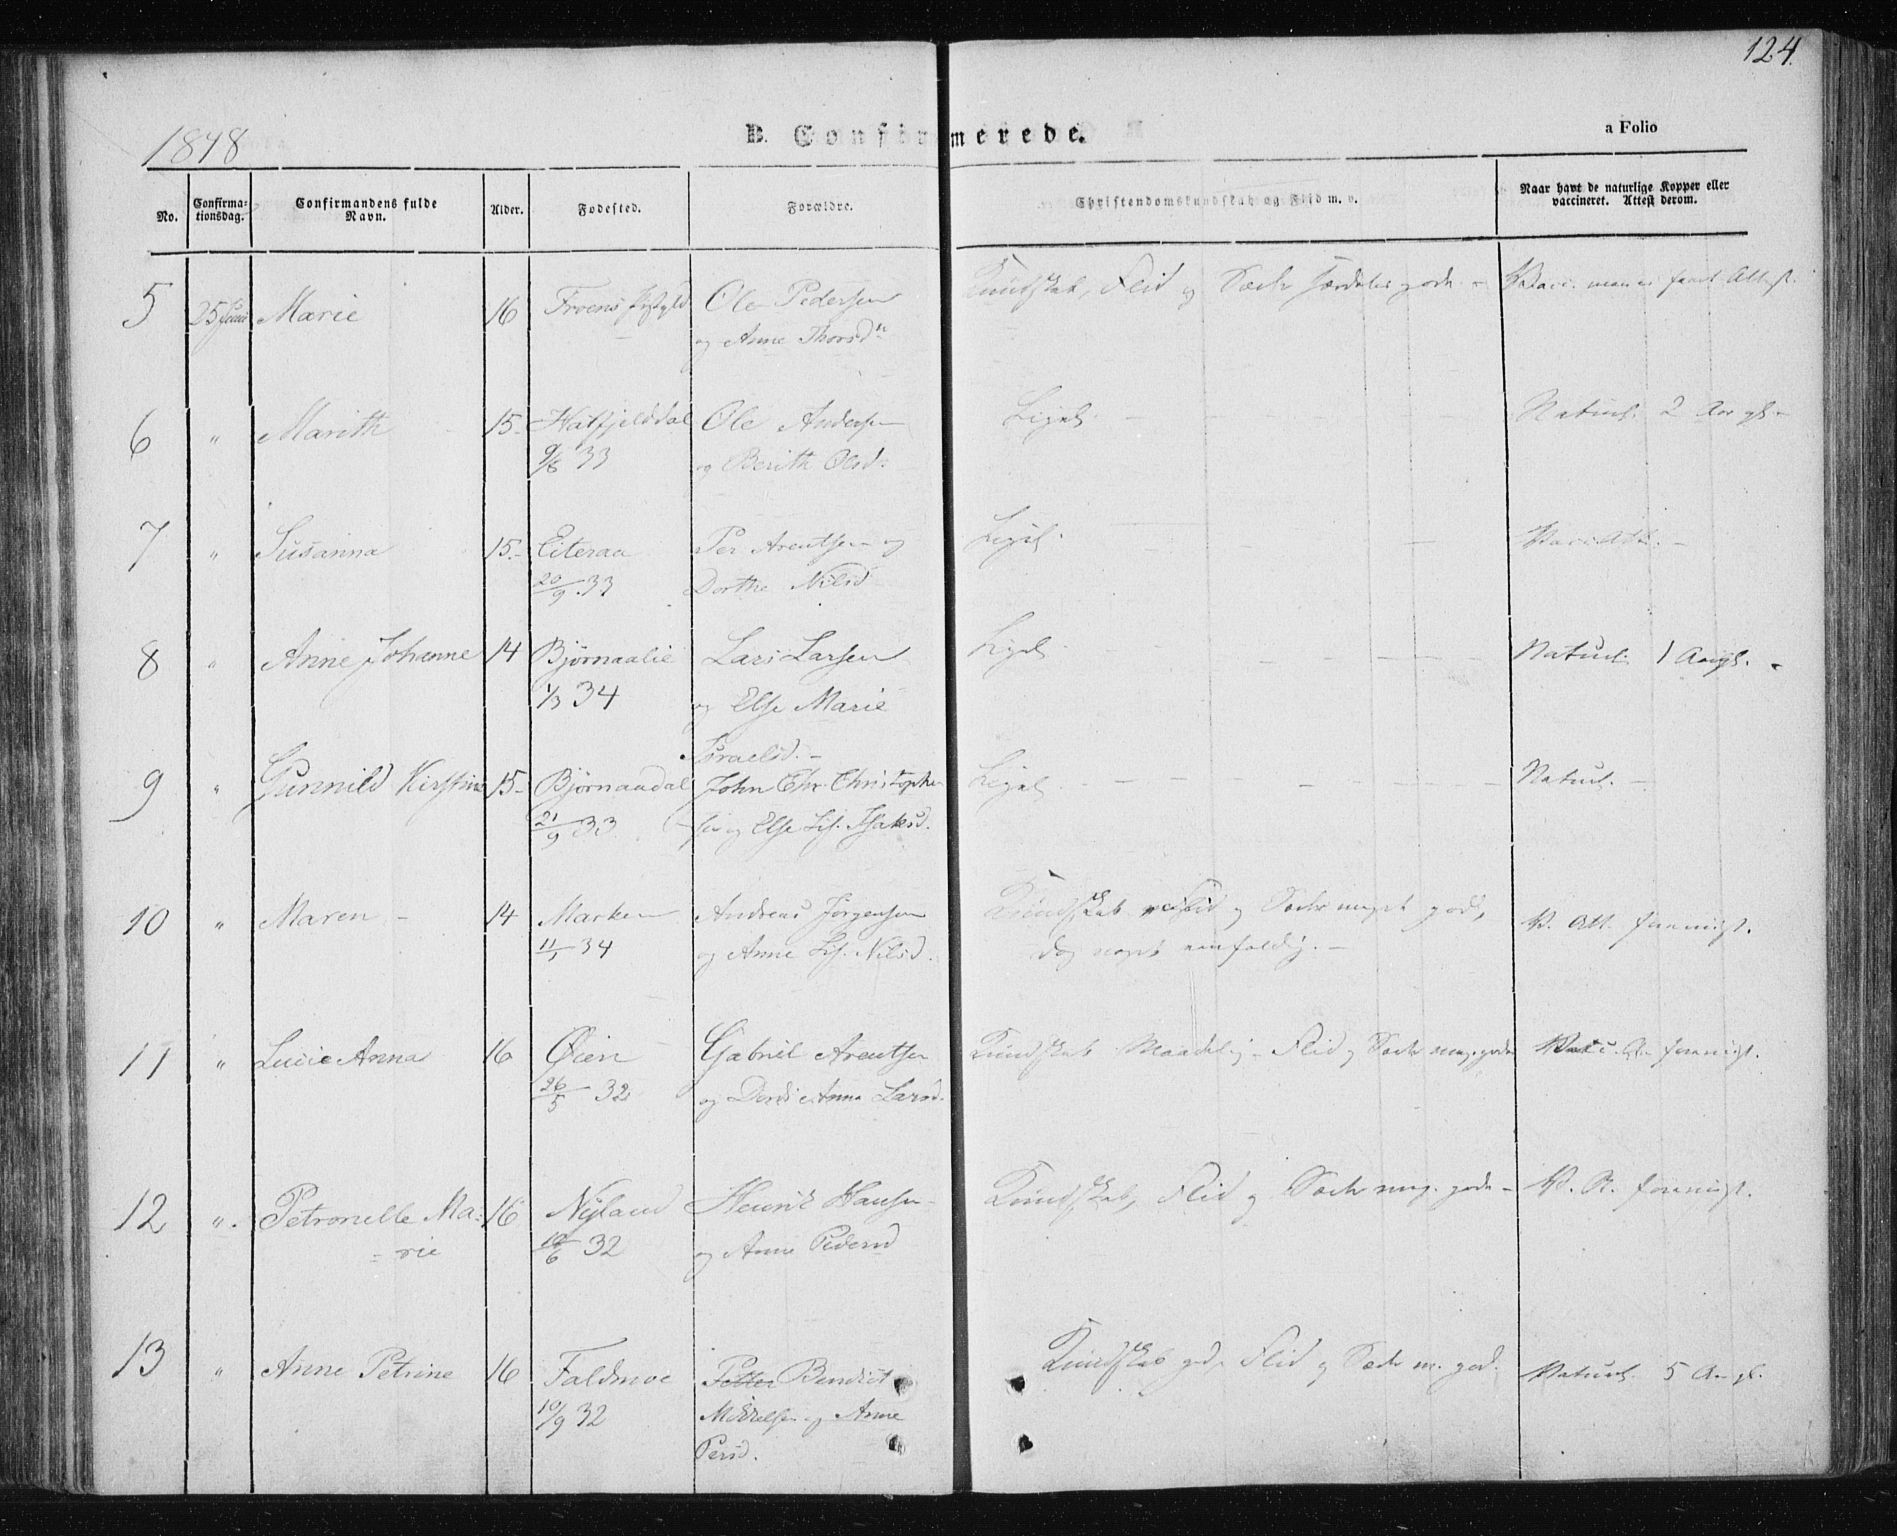 124.
1848
B. Confirmerede.
a Folio
No.
Confirma-
tionsdag.
Confirmandens fulde
Navn.
Alder.
Fødested.
Forældre.
Christendomskundskab og Flid m. v.
Naar havt de naturlige Kopper eller
vaccineret. Attest derom.
5 25 Juni Marie 16 Ole Pedersen Kundskab, Flid og Sæder særdeles gode -
og Anne Thorsdr
6 " Marith 15- Hatfjelddal Ole Andersen Ligel. Naturl. 2 Aar gl. -
9/6 33 og Berith Olsd.
7 " Susanna 15- Eiteraa Per Arentsen og Ligel. Vacc. Att. -
20/9 33 Dorthe Nilsd
8 " Anne Johanne 14 Bjørnaalie Lars Larsen Ligel. Naturl. 1 Aar gl. -
1/3 34 og Else Marie
Israelsd. -
9 " Gunnild Kirstine 15- Bjørnaadal John Chr. Christophe- Ligel. Naturl. -
21/9 33 sen og Else Lis. Isaksd.
10 " Maren - 14 Marken Andreas Jørgensen Kundskab Flid og Sæder meget gode, V. Att. fremvist.
11/1 34 og Anne Lis. Nilsd. dog noget eenfoldig. -
11 " Lucie Anna 16 Øien Gabriel Arentsen Kundskab Maadelig - Flid og Sæder meg. gode Vacc. A. fremvist.
26/5 32 og Dordie Anna Larsd.
12 ". Petronelle Ma- 16 Nyland Henrik Hansen Kundskab, Flid og Sæder meg. gode - V. A. fremvist.
= rie /6 32 og Anne Pedersd
13 " Anne Petrine 16 Faldmoe Petter Bendict Kundskab god, Flid og Sæder m. god. Naturl. 5 Aar gl.
10/9 32 Mikkelsen og Anne
Persd.